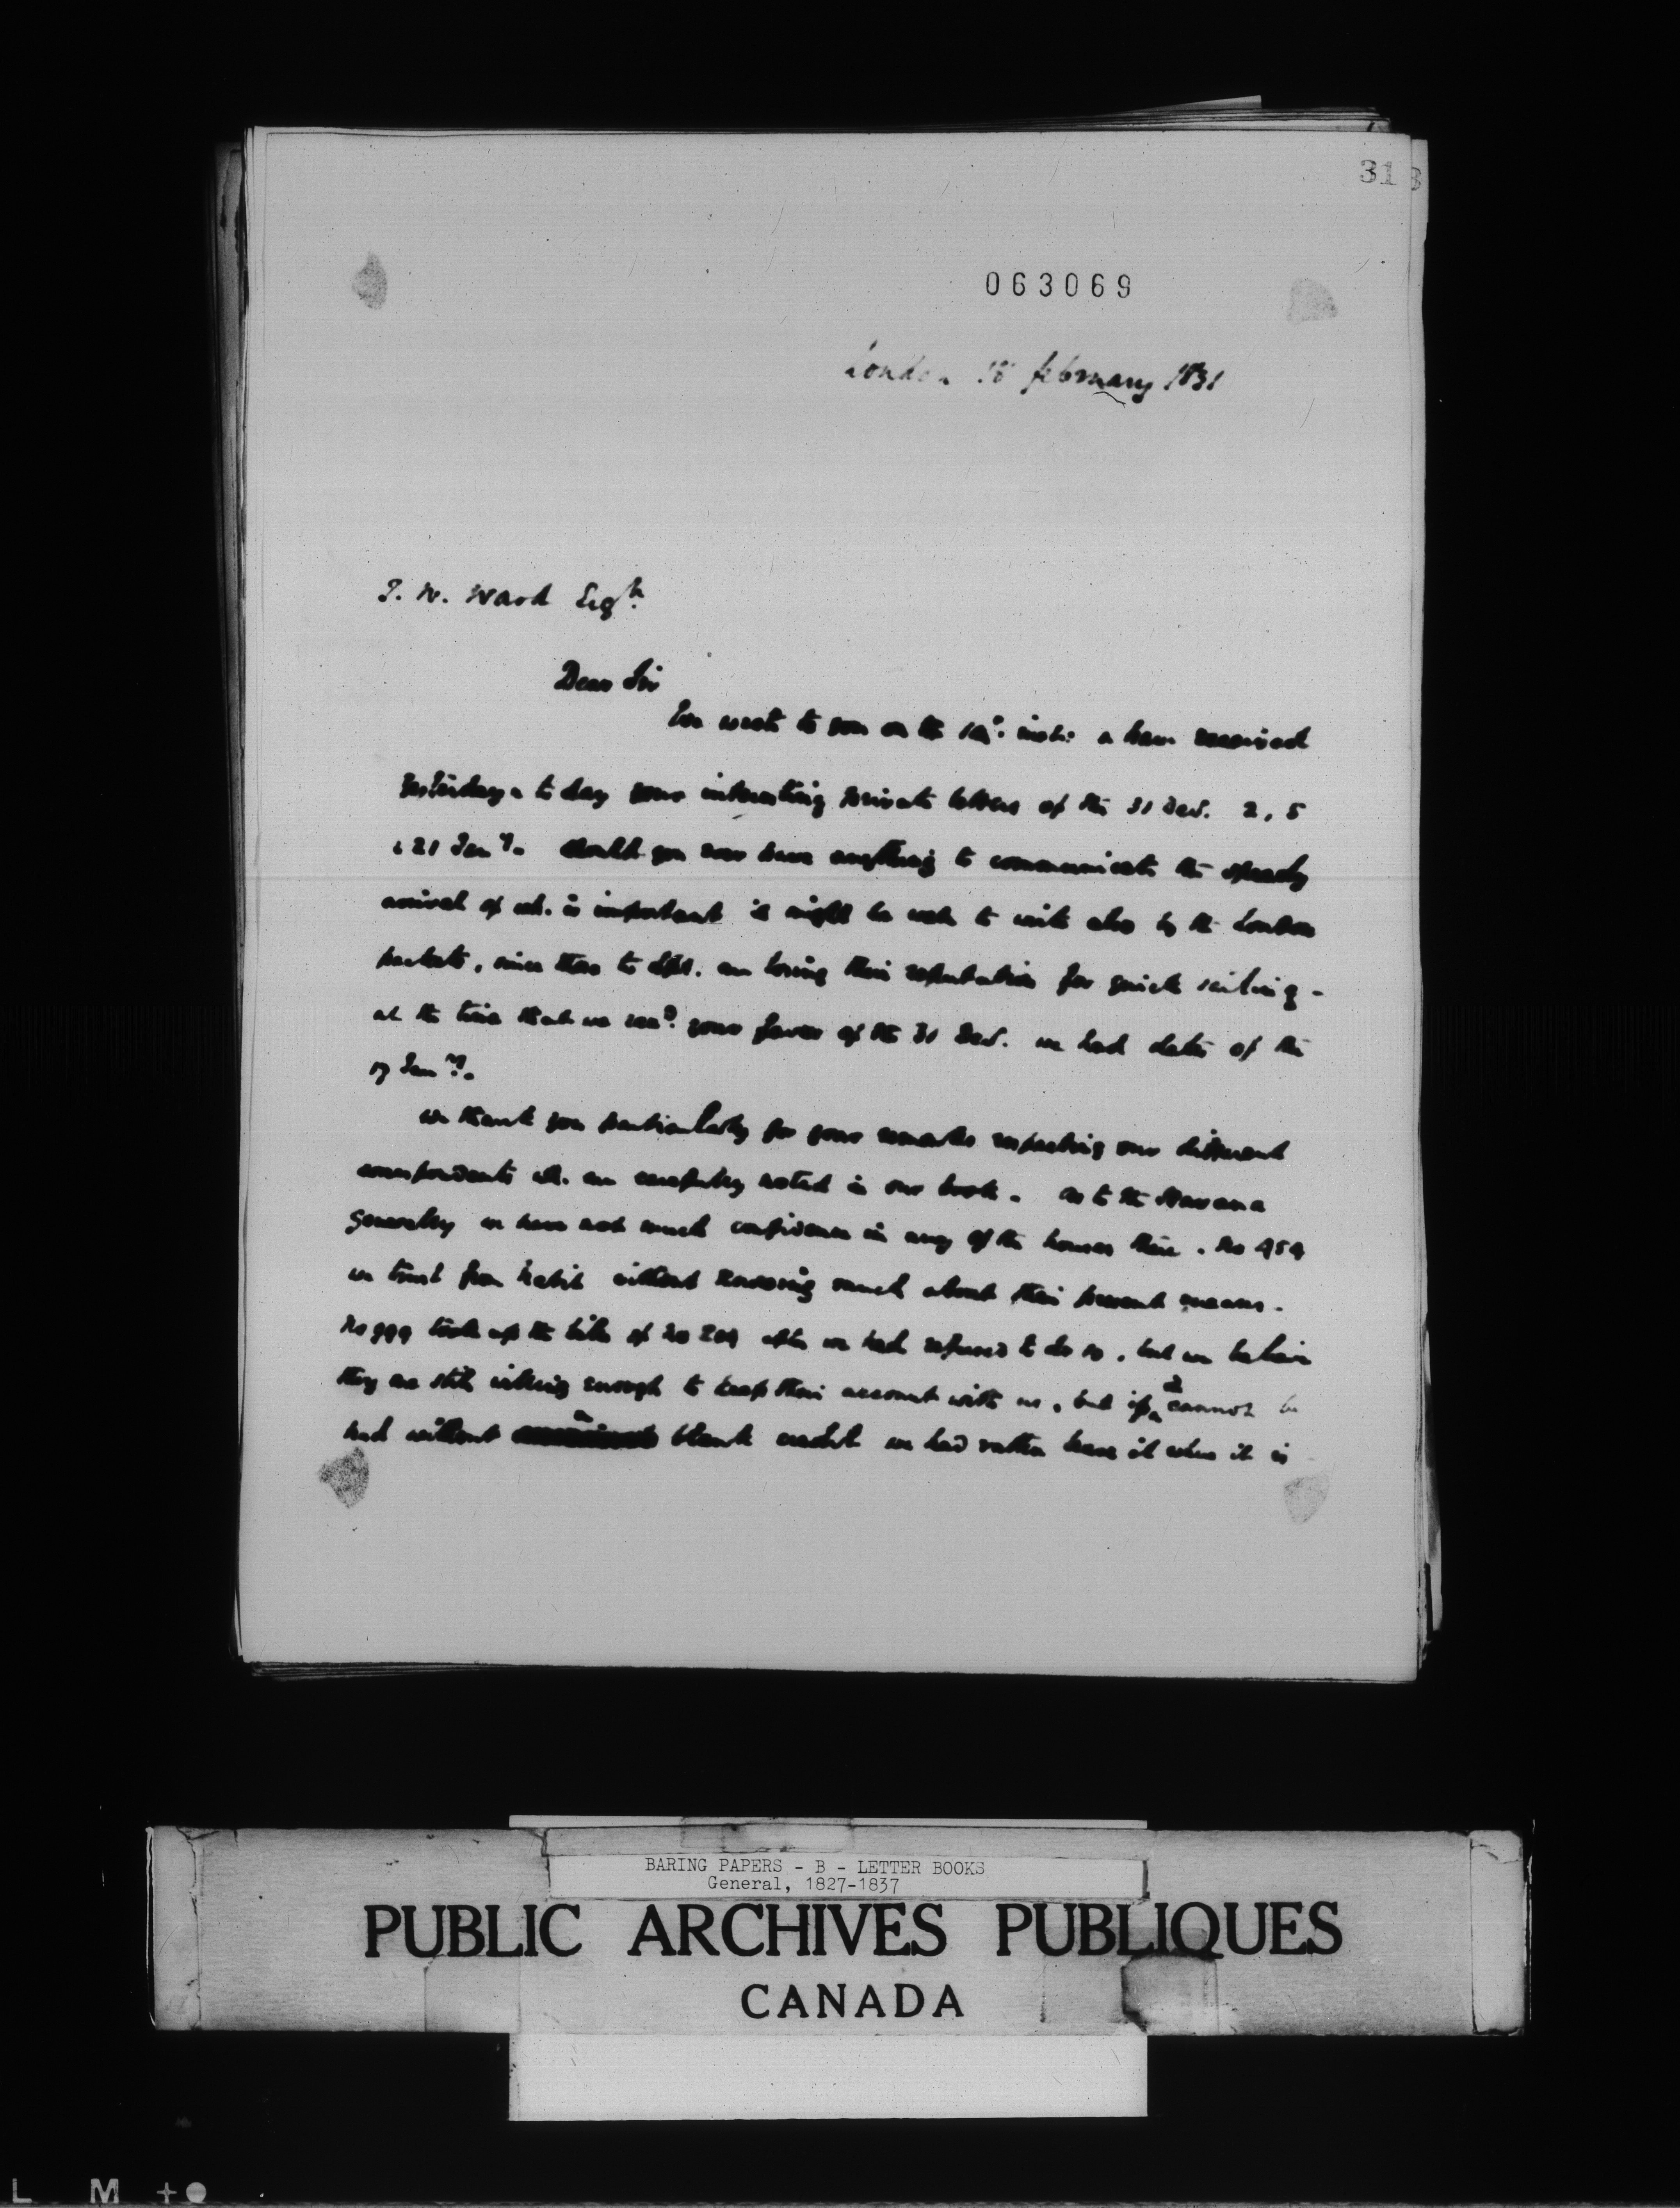 31
063069
London 18 february 1831
T. W. Ward Esqr.
Dear Sir
We wrote to you on the inst: & have received
yesterday & to day your interesting private letters of the 31 Dec. 2, 5
& 21 Jany. Should you ever have anything to communicate the speedy
arrival of wh. is important it might be well to write also by the London
packets, since those to are losing their reputation for quick sailing -
at the time that we recd. your favor of the 31 Dec. we had dates of the
17 Jany.
We thank you particularly for your remarks respecting our different
correspondents wh. are carefully noted in our book. As to the Havana
generally we have not much confidence in any of the houses there. No 454
we trust from habit without knowing much about their present means.
No 999 took up the bills of No 209 after we had refused to do so, but we believe
they are still willing enough to keep their account with us, but if it cannot be
had without a blank credit we had rather leave it where it is
BARING PAPERS - B - LETTER BOOKS
General, 1827-1837
PUBLIC ARCHIVES PUBLIQUES
CANADA
L M +